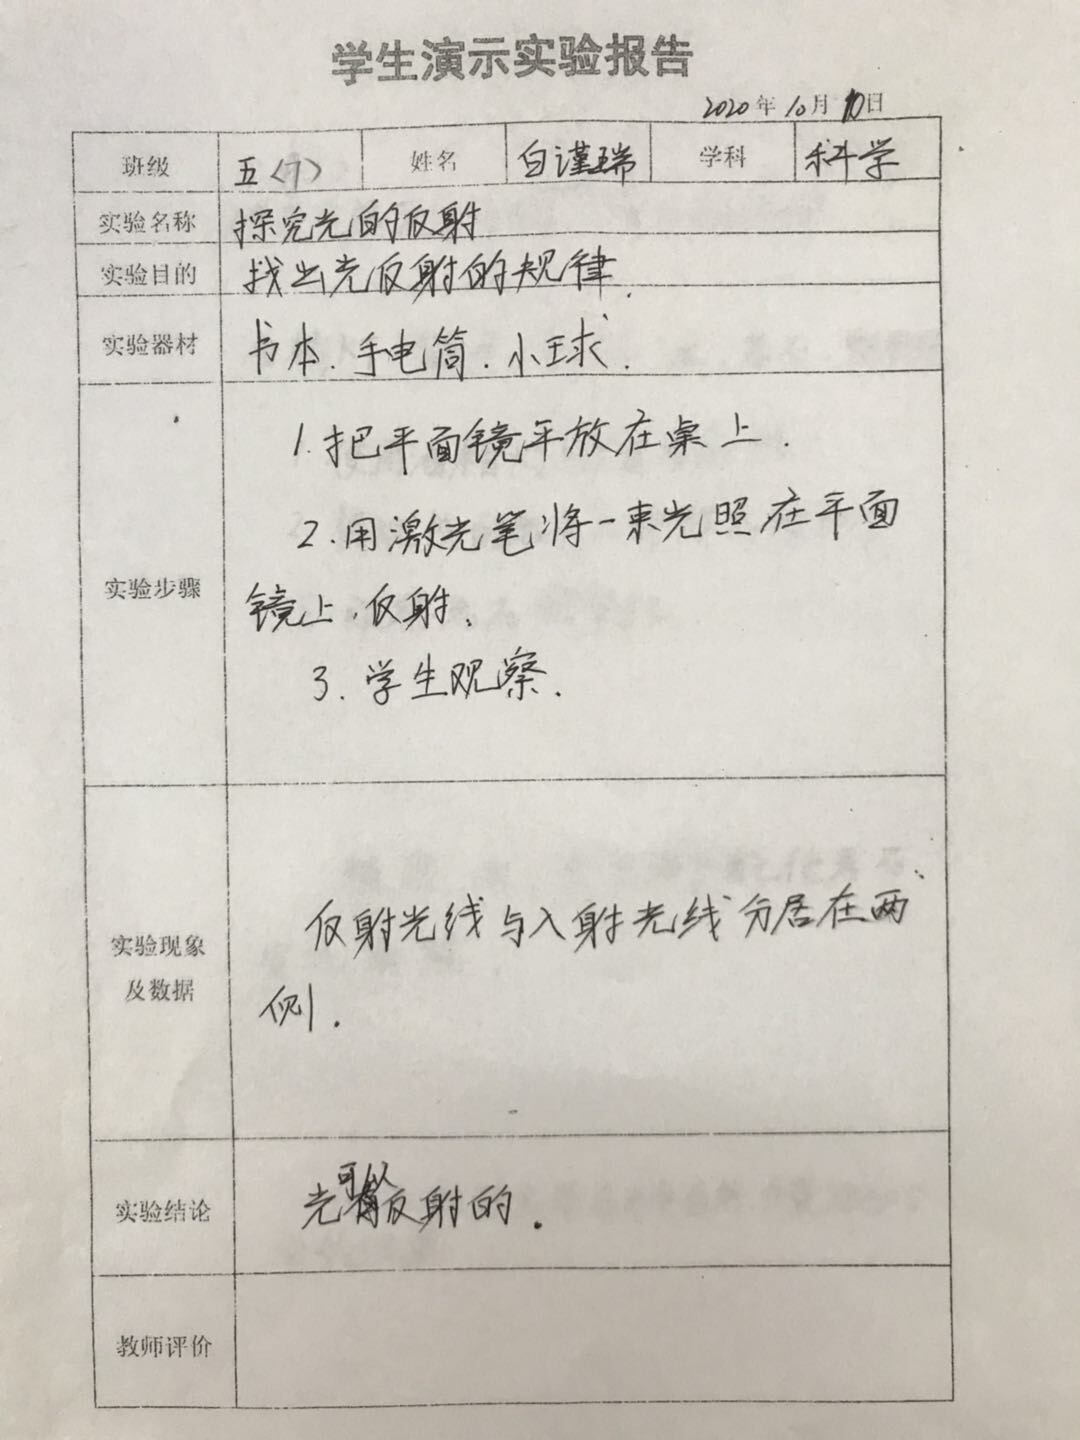 学生演示实验报告
2020年10月10日
班级 五(7) 姓名 白谨瑞 学科 科学
实验名称 探究光的反射
实验目的 找出光反射的规律.
实验器材 书本.手电筒.小球.
1.把平面镜平放在桌上.
2.用激光笔将一束光照在平面
实验步骤
镜上,反射.
3.学生观察.
反射光线与入射光线分居在两
实验现象
及数据
侧.
可以
实验结论 光反射的.
教师评价